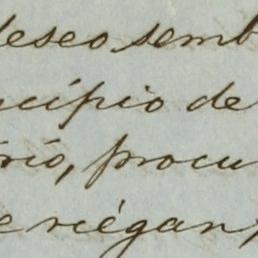 deseo semb
ncípio de
río, procu
e riégan,